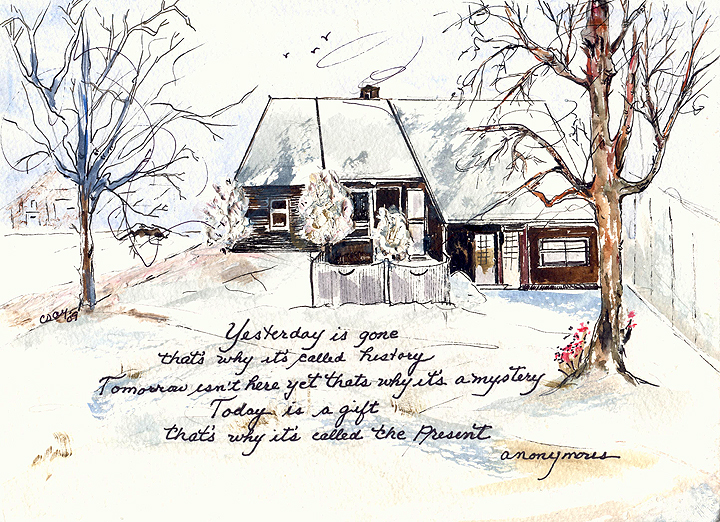 Csay
09
Yesterday is gone
that's why it's called history
Tomorrow isn't here yet thats why it's a mystery
Today is a gift
that's why it's called the Present
anonymous